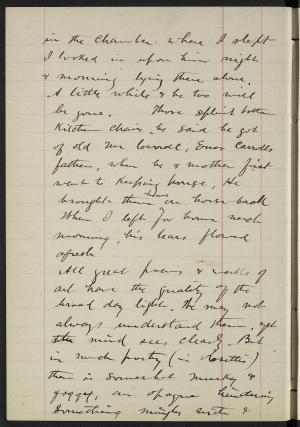 in the chamber where I slept
I looked in upon him night
& morning lying there alone.
A little while & he too will
be gone. Those splint bottom
Kitchen chairs, he said he got
of old Mr Carroll, Enos Carrolls
father, when he & mother first
went to keeping house, He
brought them home on horse back
When I left for home next
morning, his tears flowed
afresh
All great poems & works of
art have the quality of the
broad day light. We may not
always understand them, yet
the mind sees clearly. But
in much poetry (in Rosetti)
there is somewhat murky &
foggy, an opaque rendering
something